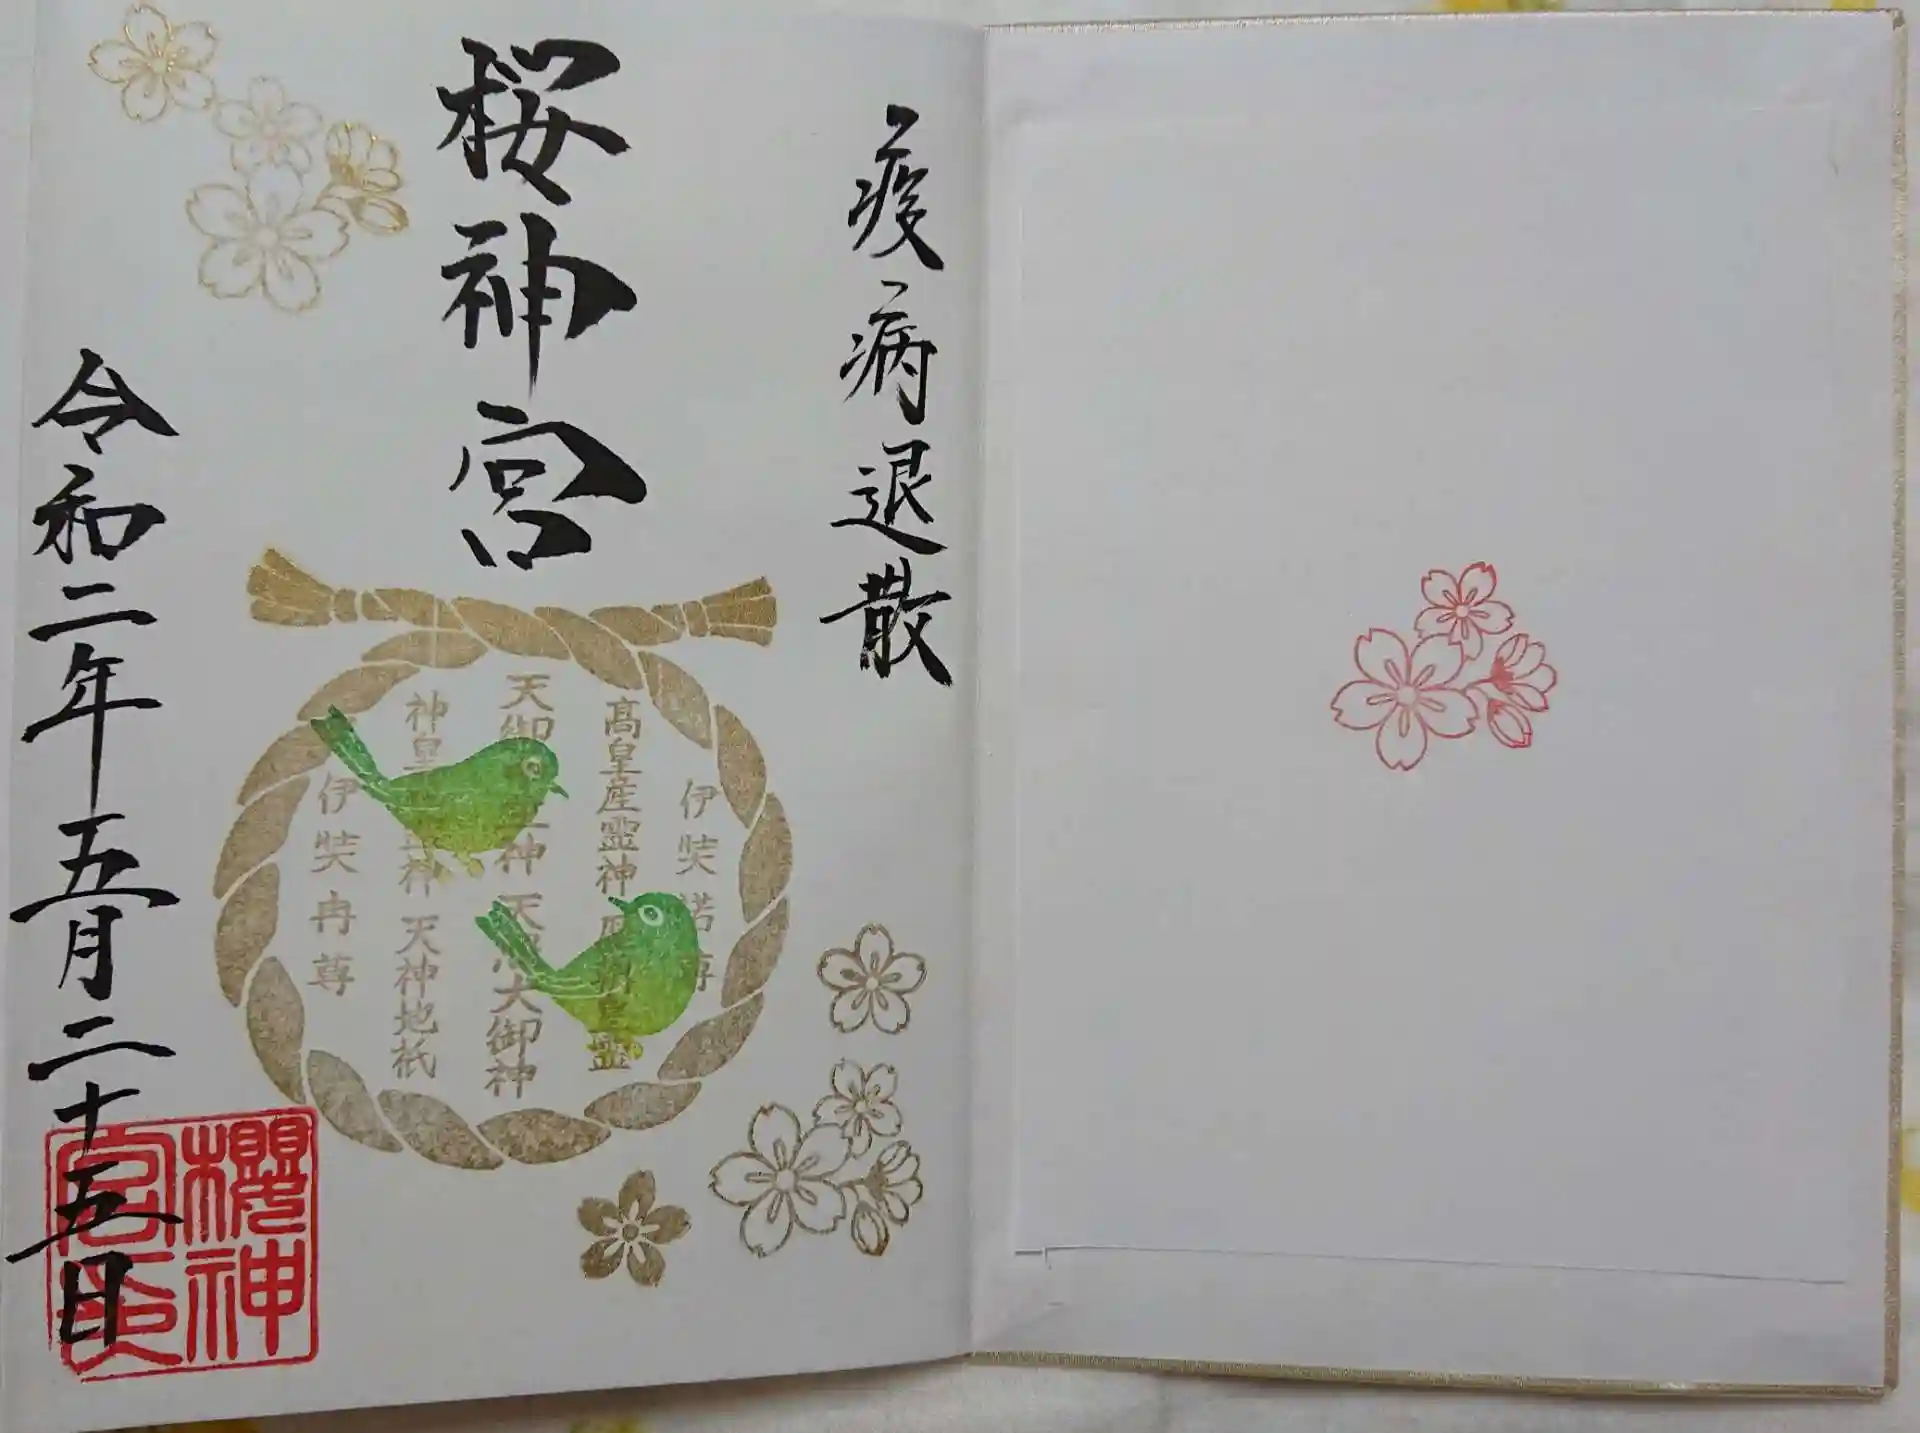 疫病退散
桜神宮
伊奘諾尊
高皇産霊神 歴朝皇霊
天御中主神 天照大御神
神皇産霊神 天神地祇
伊奘冉尊
令和二年五月二十五日
櫻神宮印